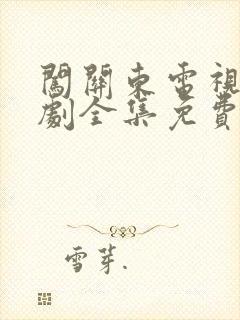 闖關東電視
劇全集免費
雪芽.